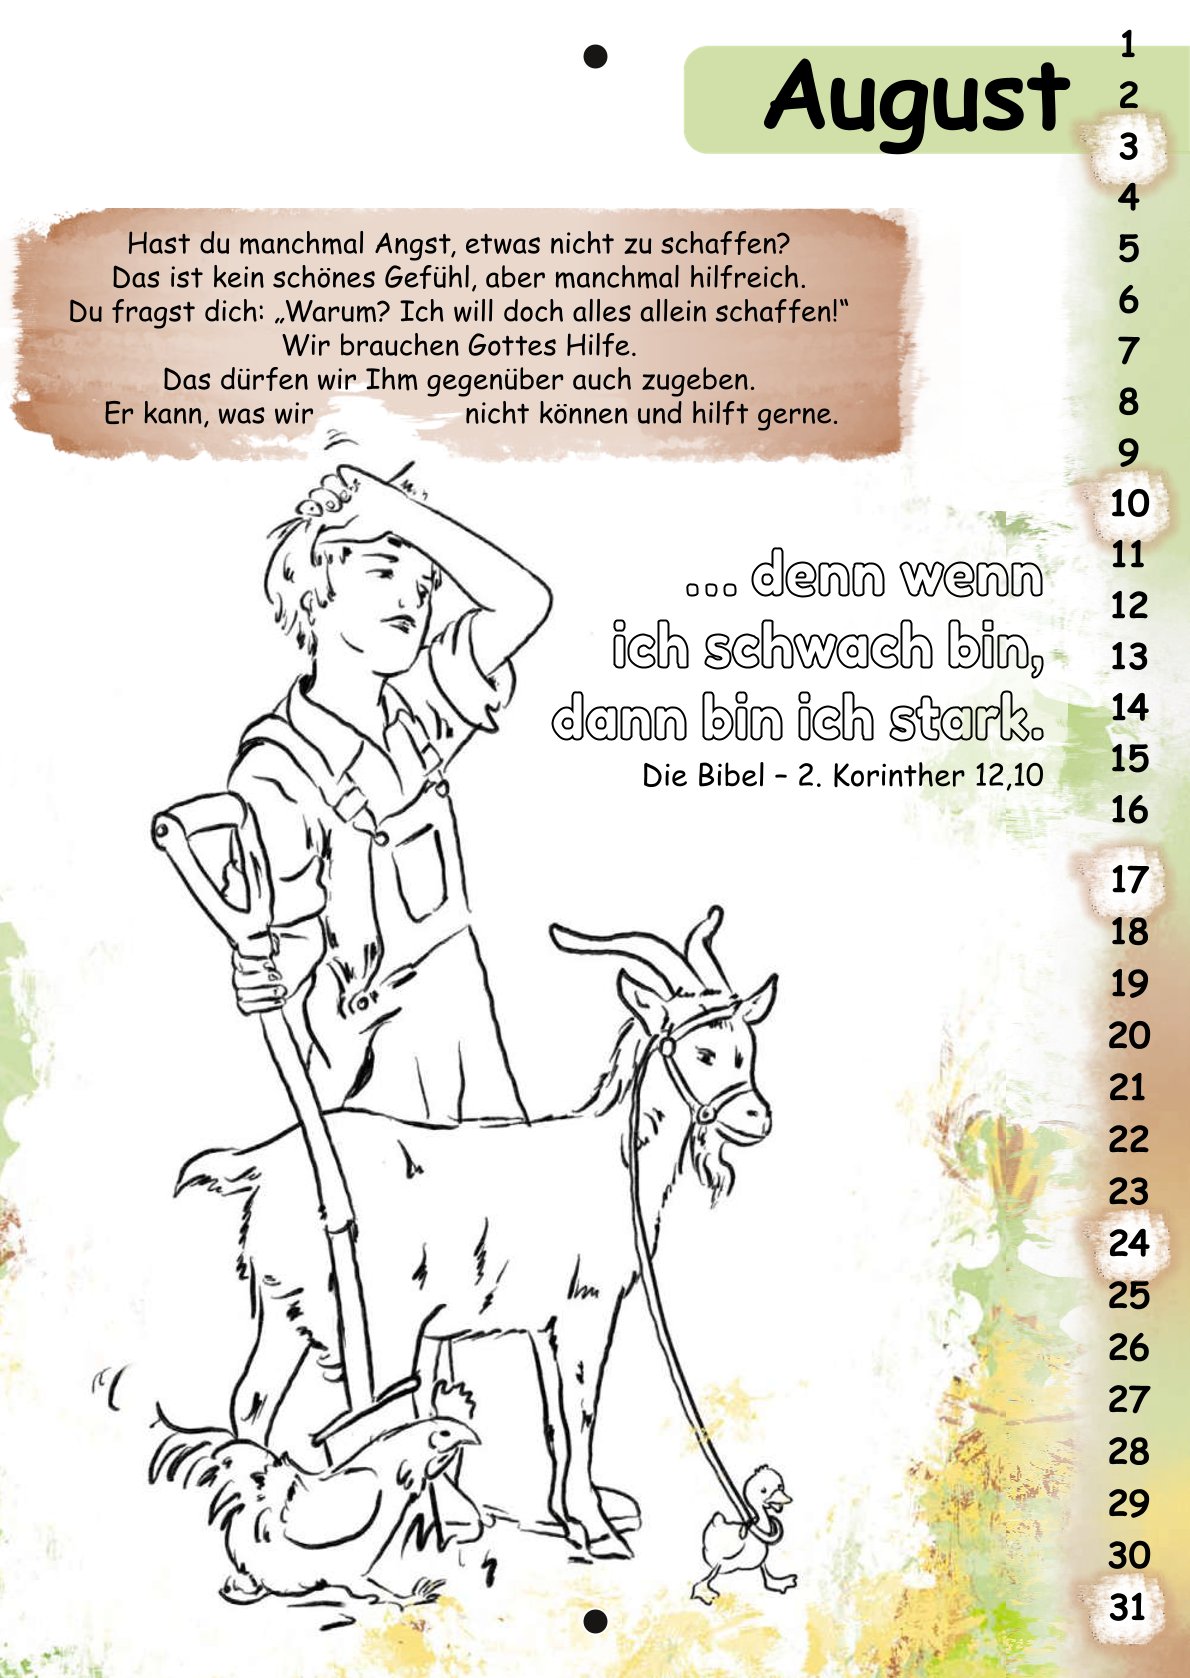 August
Hast du manchmal Angst, etwas nicht zu schaffen?
Das ist kein schönes Gefühl, aber manchmal hilfreich.
Du fragst dich: „Warum? Ich will doch alles allein schaffen!“
Wir brauchen Gottes Hilfe.
Das dürfen wir Ihm gegenüber auch zugeben.
Er kann, was wir nicht können und hilft gerne.
... denn wenn
ich schwach bin,
dann bin ich stark.
Die Bibel – 2. Korinther 12,10
1
2
3
4
5
6
7
8
9
10
11
12
13
14
15
16
17
18
19
20
21
22
23
24
25
26
27
28
29
30
31